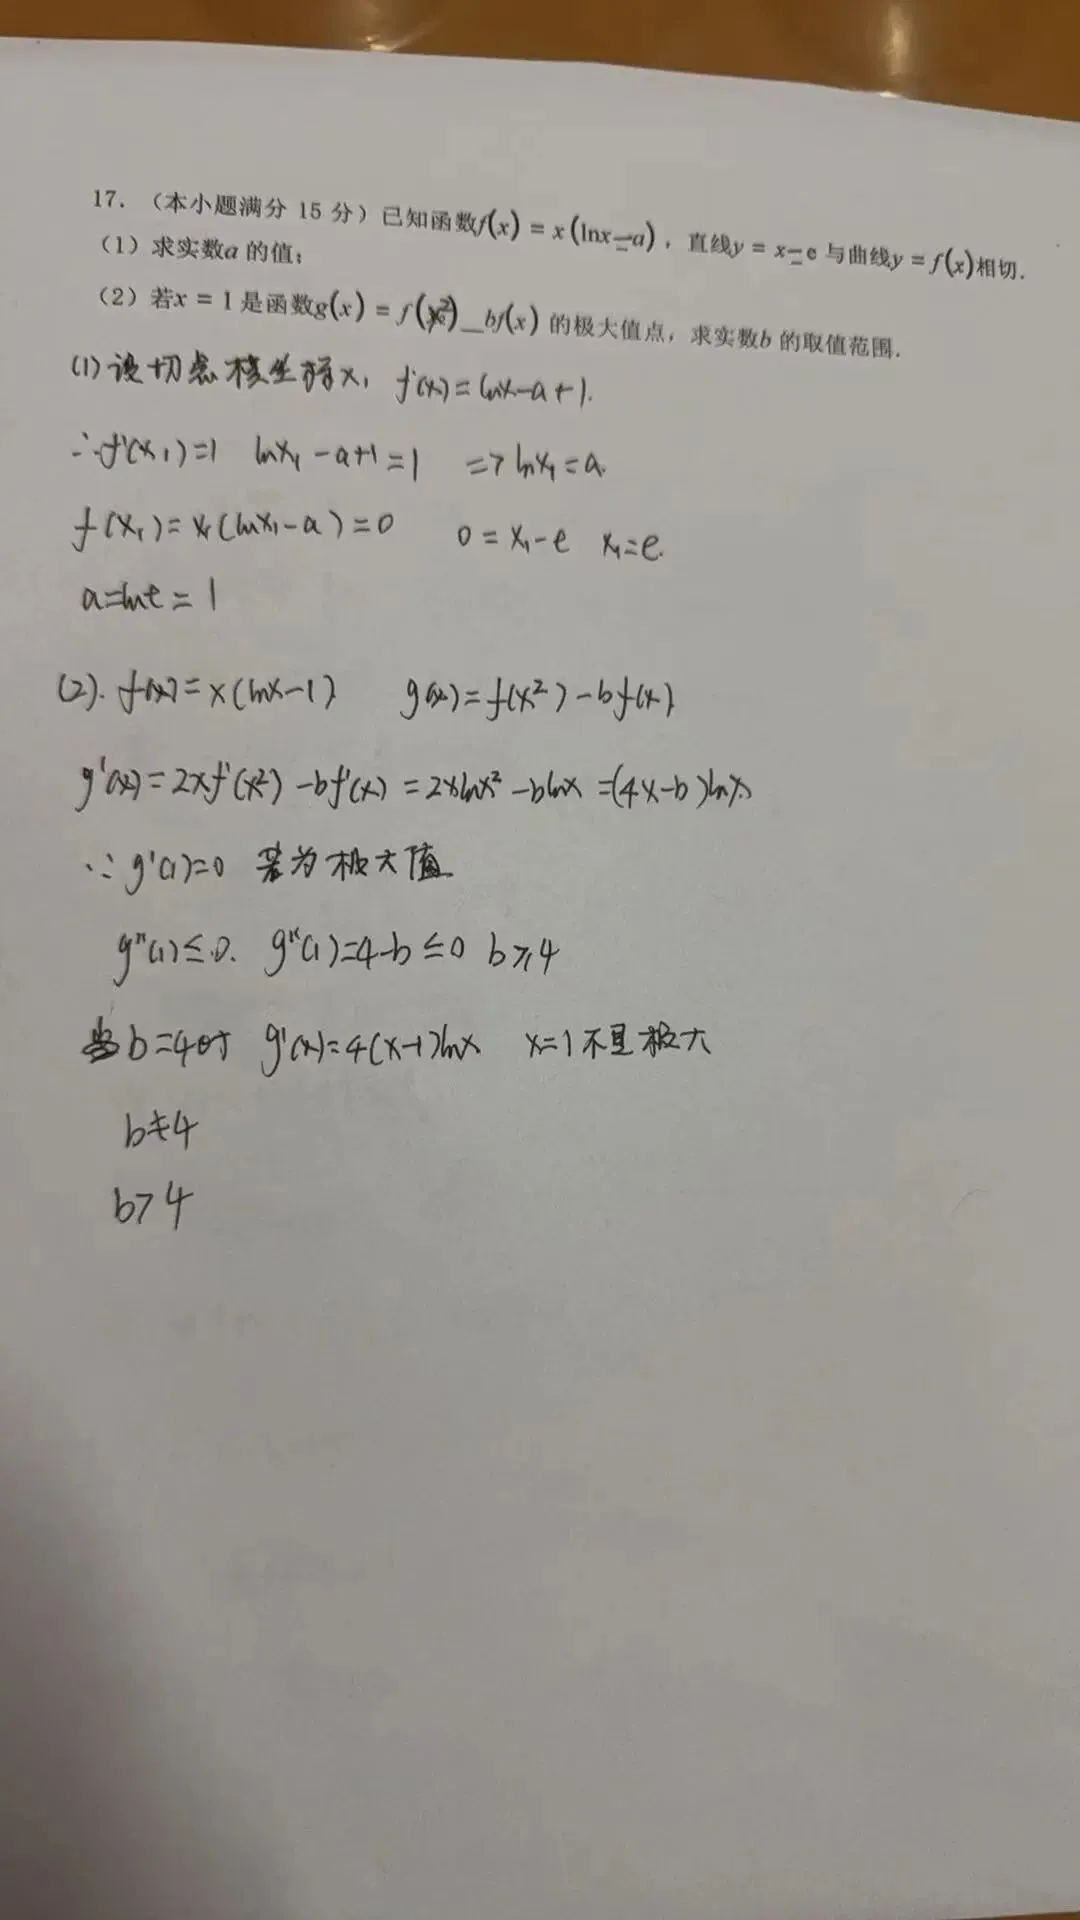 17. （本小题满分 15 分）已知函数f(x) = x(lnx－a)，直线y = x－e 与曲线y = f(x)相切.
（1）求实数a 的值；
（2）若x = 1 是函数g(x) = f(x²)－bf(x) 的极大值点，求实数b 的取值范围.
(1) 设切点横坐标x₁ f'(x)=lnx-a+1.
∴f'(x₁)=1 lnx₁-a+1=1 => lnx₁=a.
f(x₁)=x₁(lnx₁-a)=0 0=x₁-e x₁=e.
a=lne=1
(2). f(x)=x(lnx-1) g(x)=f(x²)-bf(x)
g'(x)=2xf'(x²)-bf'(x)=2xlnx²-blnx=(4x-b)lnx
∵g'(1)=0 若为极大值
g''(1)≤0. g''(1)=4-b≤0 b≥4
当b=4时 g'(x)=4(x-1)lnx x=1不是极大
b≠4
b>4